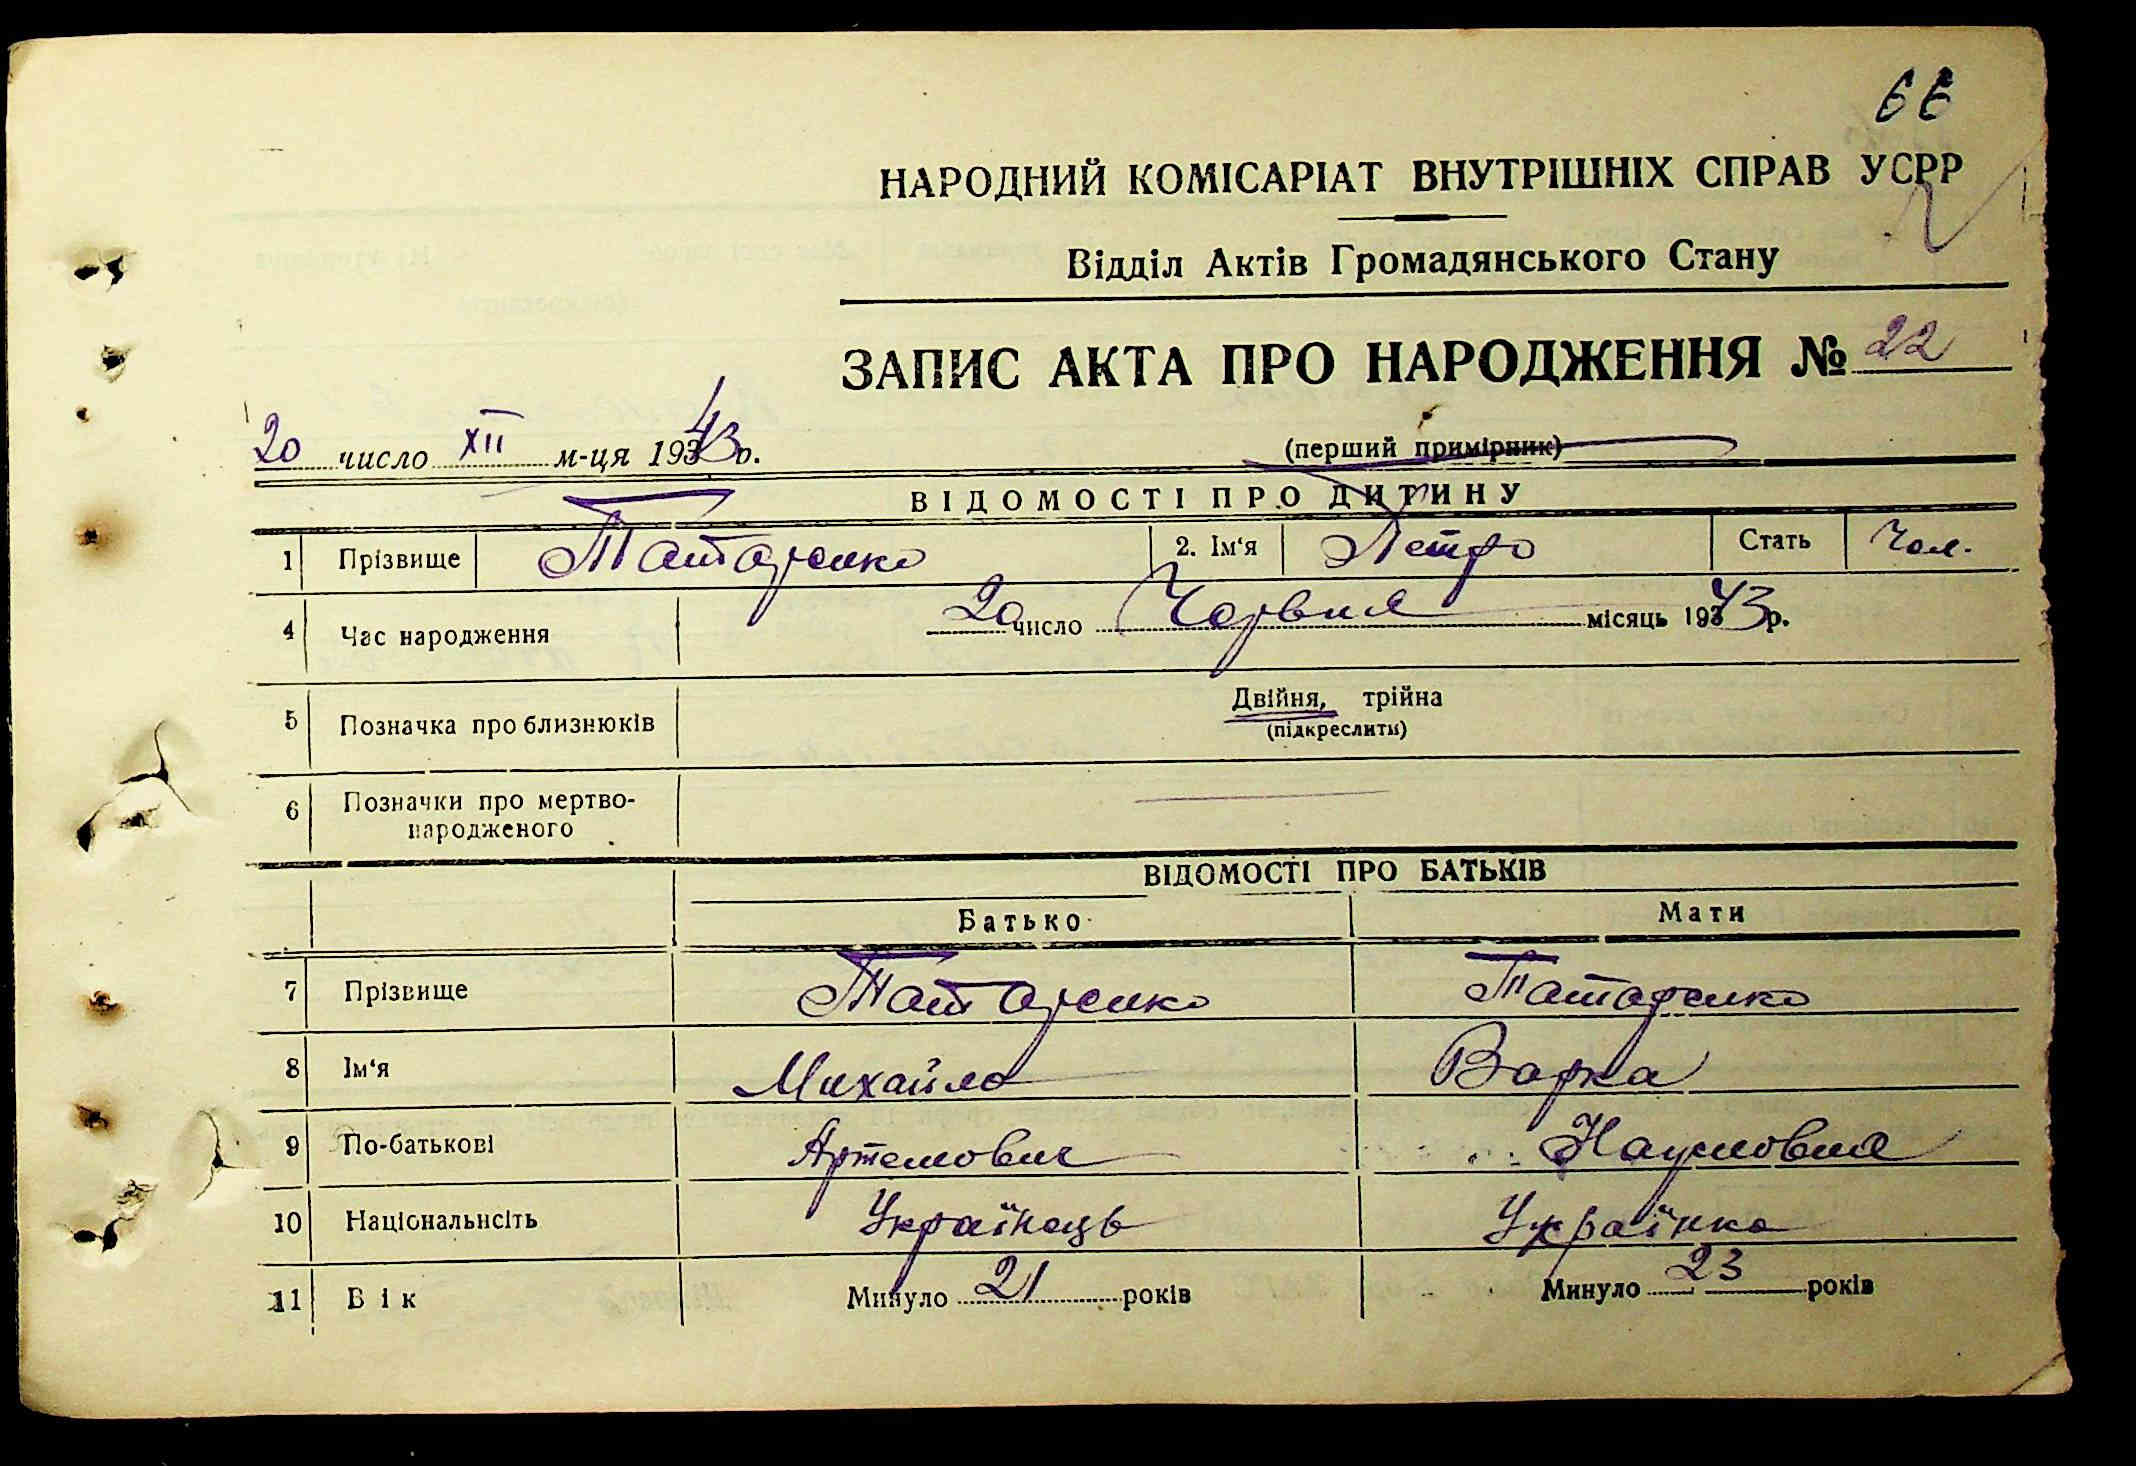 66
НАРОДНИЙ КОМІСАРІАТ ВНУТРІШНІХ СПРАВ УСРР
Відділ Актів Громадянського Стану
ЗАПИС АКТА ПРО НАРОДЖЕННЯ № 22
20 число XII м-ця 1943 р.
(перший примірник)
ВІДОМОСТІ ПРО ДИТИНУ
1 Прізвище Татаренко 2. Ім'я Петро Стать Чол.
4 Час народження 20 число Червня місяць 1943 р.
5 Позначка про близнюків Двійня, трійна
(підкреслити)
6 Позначки про мертво-
народженого
ВІДОМОСТІ ПРО БАТЬКІВ
Батько Мати
7 Прізвище Татаренко Татаренко
8 Ім'я Михайло Варка
9 По-батькові Артемович Наумовна
10 Національнсіть Українець Українка
11 Вік Минуло 21 років Минуло 23 років